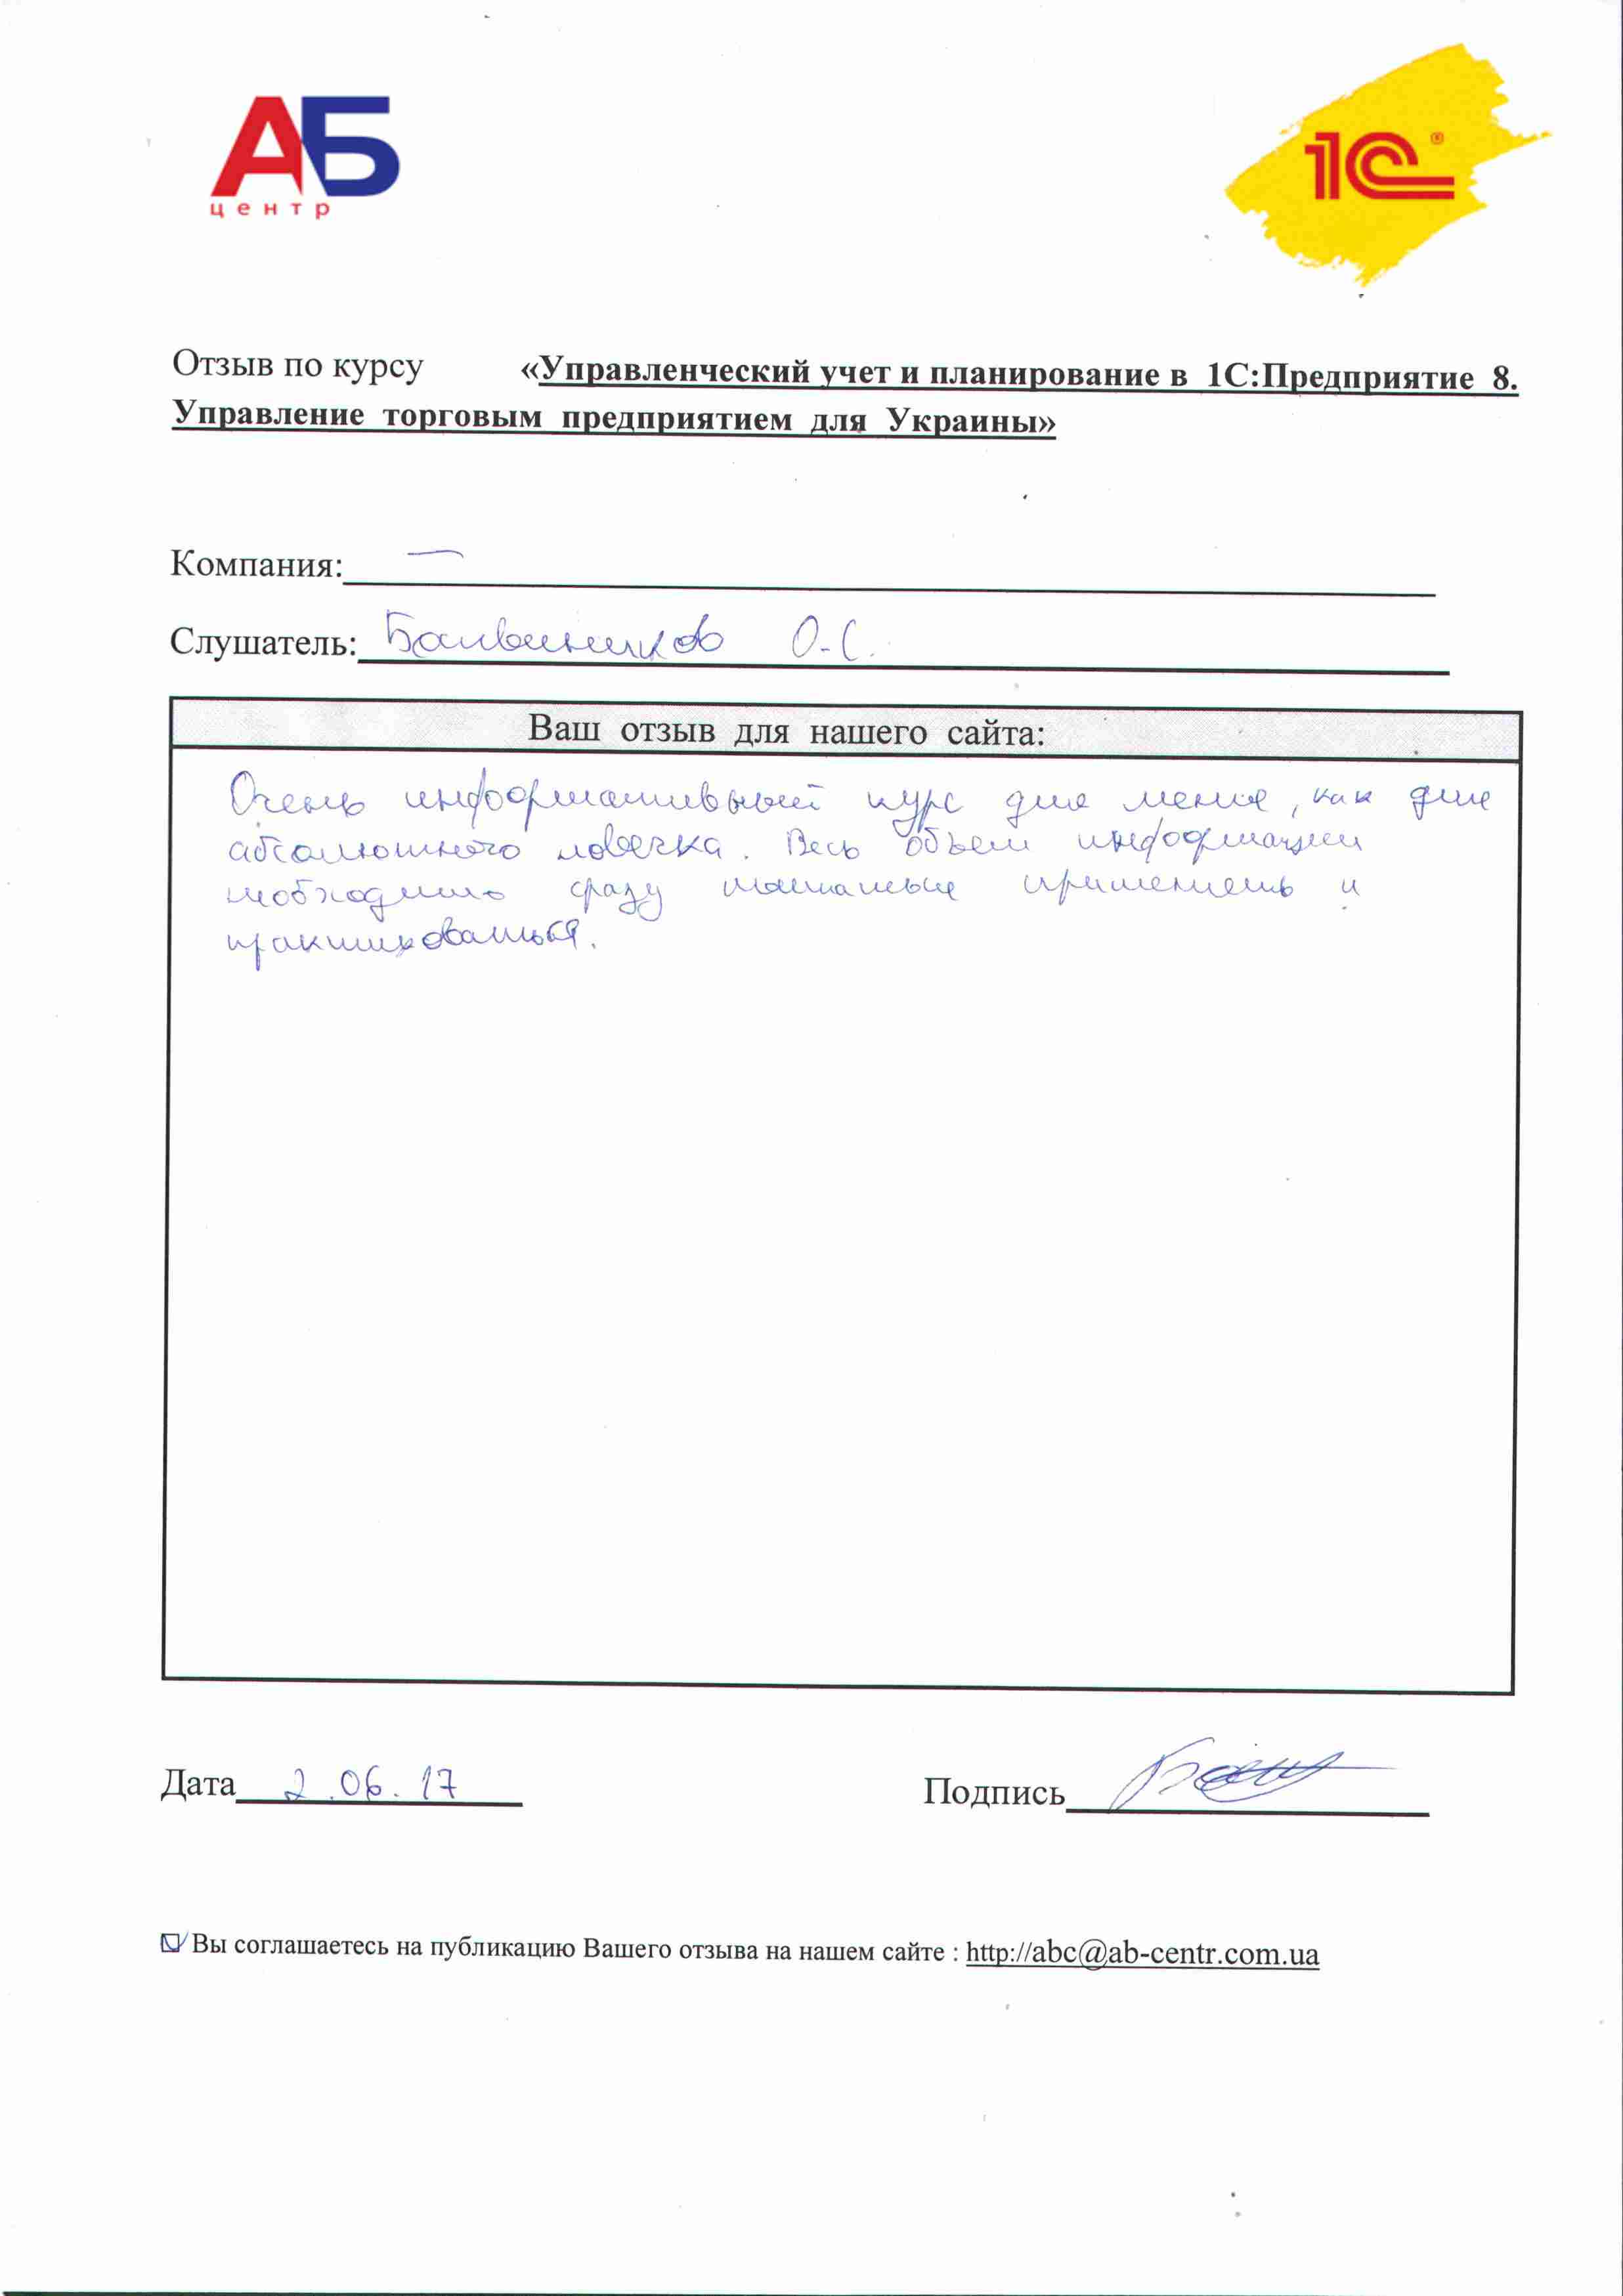 АБ
центр
1С®
Отзыв по курсу «Управленческий учет и планирование в 1С:Предприятие 8.
Управление торговым предприятием для Украины»
Компания: —
Слушатель: О.С.
Ваш отзыв для нашего сайта:
Очень информативный курс для меня, как для
абсолютного новичка. Весь объем информации
необходимо сразу применять и
практиковаться.
Дата 2.06.17 Подпись
Вы соглашаетесь на публикацию Вашего отзыва на нашем сайте : http://abc@ab-centr.com.ua